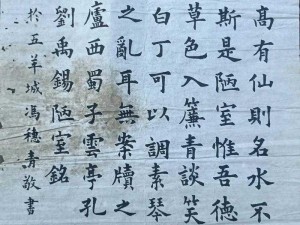 高有仙則名水不
斯是陋室惟吾德
草色入簾青談笑
白丁可以調素琴
之亂耳無案牘之
廬西蜀子雲亭孔
劉禹錫陋室銘
於五羊城馮穗青敬書